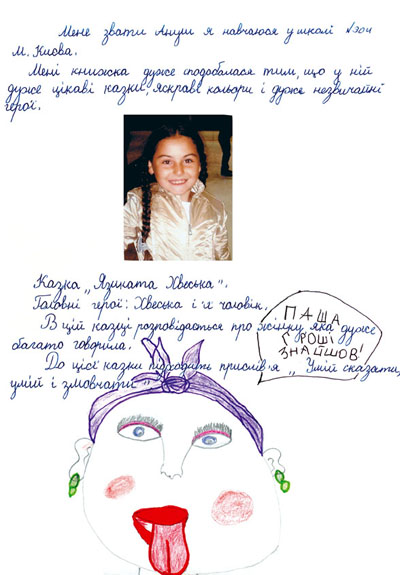 Мене звати Ануш я навчаюся у школі №304
м. Києва.
Мені книжка дуже сподобалася тим, що у ній
дуже цікаві казки, яскраві кольори і дуже незвичайні
герої.
Казка „Язиката Хвеська".
Головні герої: Хвеська і їх чоловік.
В цій казці розповідається про жінку яка дуже
багато говорила.
До цієї казки підходить прислів'я „Умій сказати,
умій і змовчати"
ПАША
ГРОШІ
ЗНАЙШОВ!